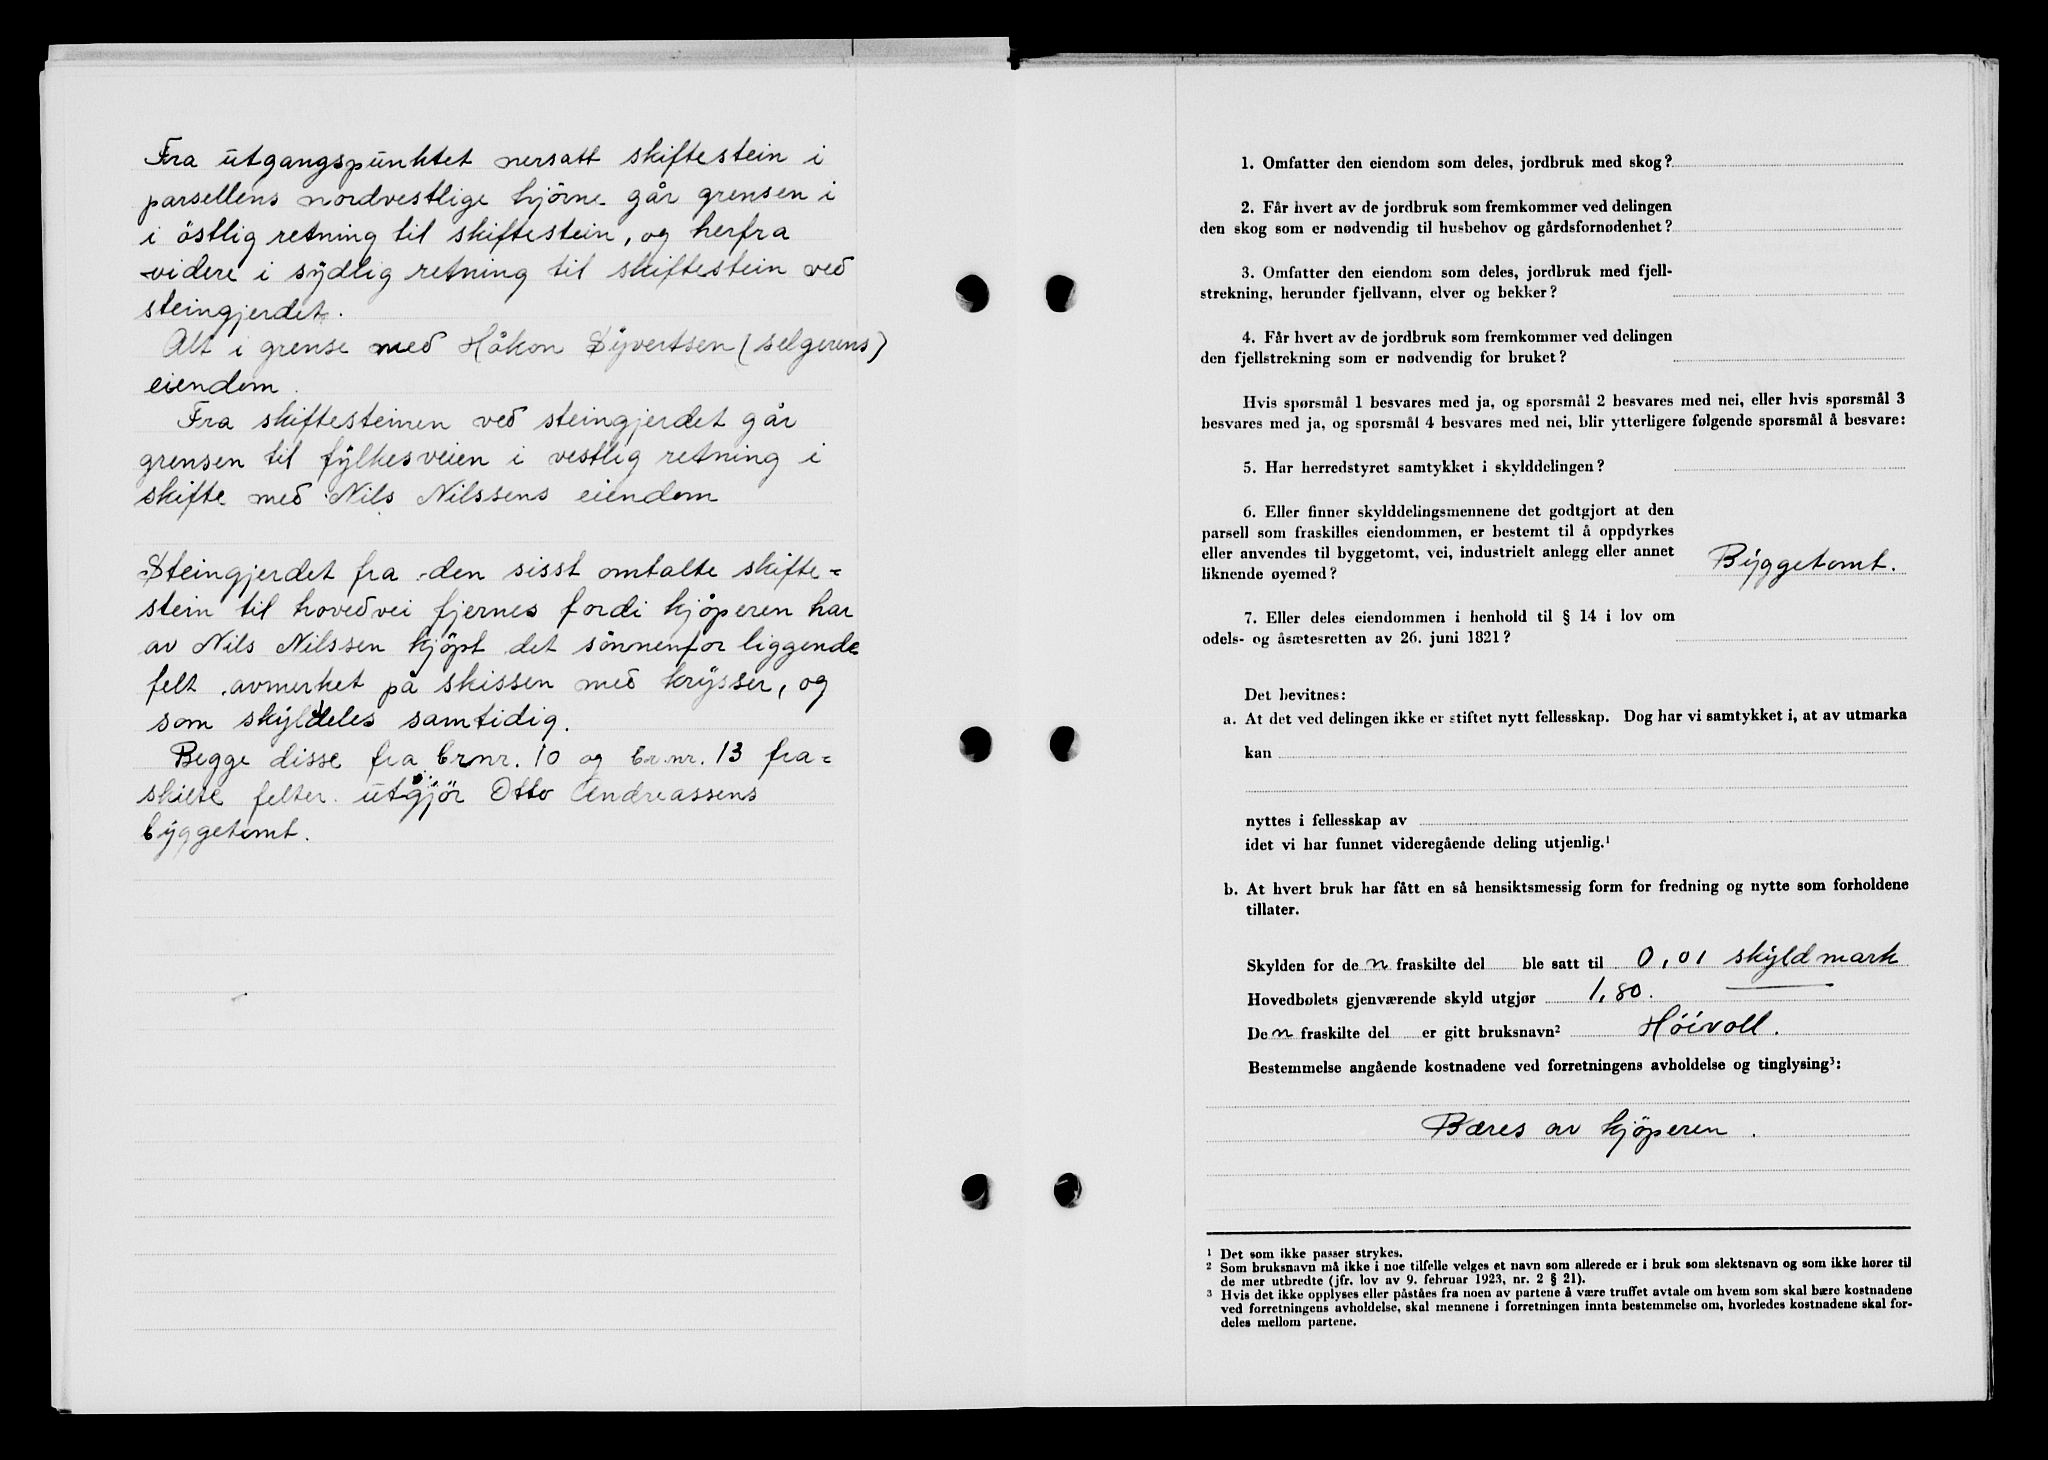 Fra utgangspunktet nersatt skiftestein i
parsellens nordvestlige hjörne går grensen i
i östlig retning til skiftestein, og herfra
videre i sydlig retning til skiftestein ved
steingjerdet.
Alt i grense med Håkon Syvertsen (selgerens)
eiendom.
Fra skiftesteinen ved steingjerdet går
grensen til fylkesveien i vestlig retning i
skifte med Nils Nilssens eiendom
Steingjerdet fra den sisst omtalte skifte=
stein til hovedvei fjernes fordi kjöperen har
av Nils Nilssen kjöpt det sönnenfor liggende
felt avmerket på skissen med krysser, og
som skyldeles samtidig.
Begge disse fra brnr. 10 og br.nr. 13 fra=
skilte felter utgjör Otto Andreassens
byggetomt.
1. Omfatter den eiendom som deles, jordbruk med skog?
2. Får hvert av de jordbruk som fremkommer ved delingen
den skog som er nødvendig til husbehov og gårdsfornødenhet?
3. Omfatter den eiendom som deles, jordbruk med fjell-
strekning, herunder fjellvann, elver og bekker?
4. Får hvert av de jordbruk som fremkommer ved delingen
den fjellstrekning som er nødvendig for bruket?
Hvis spørsmål 1 besvares med ja, og spørsmål 2 besvares med nei, eller hvis spørsmål 3
besvares med ja, og spørsmål 4 besvares med nei, blir ytterligere følgende spørsmål å besvare:
5. Har herredstyret samtykket i skylddelingen?
6. Eller finner skylddelingsmennene det godtgjort at den
parsell som fraskilles eiendommen, er bestemt til å oppdyrkes
eller anvendes til byggetomt, vei, industrielt anlegg eller annet
liknende øyemed? Byggetomt.
7. Eller deles eiendommen i henhold til § 14 i lov om
odels- og åsætesretten av 26. juni 1821?
Det bevitnes:
a. At det ved delingen ikke er stiftet nytt fellesskap. Dog har vi samtykket i, at av utmarka
kan
nyttes i fellesskap av
idet vi har funnet videregående deling utjenlig.¹
b. At hvert bruk har fått en så hensiktsmessig form for fredning og nytte som forholdene
tillater.
Skylden for de n fraskilte del ble satt til 0,01 skyldmark
Hovedbølets gjenværende skyld utgjør 1,80.
De n fraskilte del er gitt bruksnavn² Höivoll.
Bestemmelse angående kostnadene ved forretningens avholdelse og tinglysing³:
Bæres av kjöperen.
¹ Det som ikke passer strykes.
² Som bruksnavn må ikke i noe tilfelle velges et navn som allerede er i bruk som slektsnavn og som ikke hører til
de mer utbredte (jfr. lov av 9. februar 1923, nr. 2 § 21).
³ Hvis det ikke opplyses eller påståes fra noen av partene å være truffet avtale om hvem som skal bære kostnadene
ved forretningens avholdelse, skal mennene i forretningen innta bestemmelse om, hvorledes kostnadene skal for-
deles mellom partene.